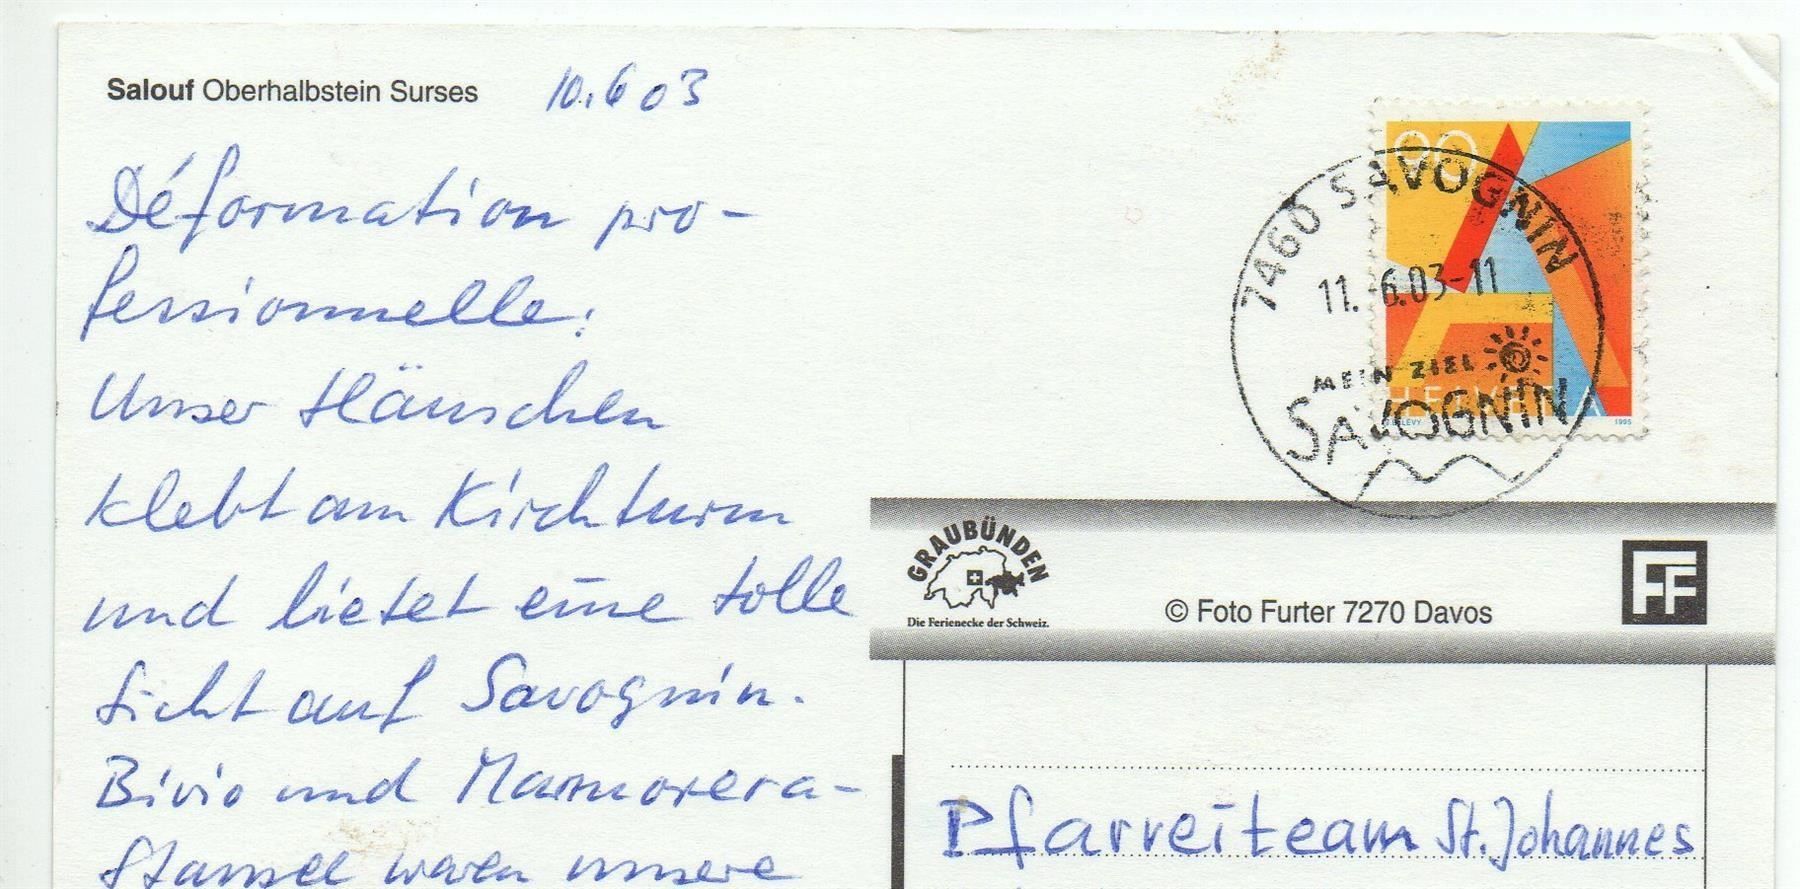 Salouf Oberhalbstein Surses 10.6 03
Déformation pro-
fessionnelle:
Unser Häuschen
klebt am Kirchturm
und bietet eine tolle
Sicht auf Savognin.
Bivio und Marmorera-
Stausee waren unsere
90
HELVETIA
1995
7460 SAVOGNIN
11.-6.03-11
MEIN ZIEL
SAVOGNIN
GRAUBÜNDEN
Die Ferienecke der Schweiz.
© Foto Furter 7270 Davos
FF
Pfarreiteam St. Johannes